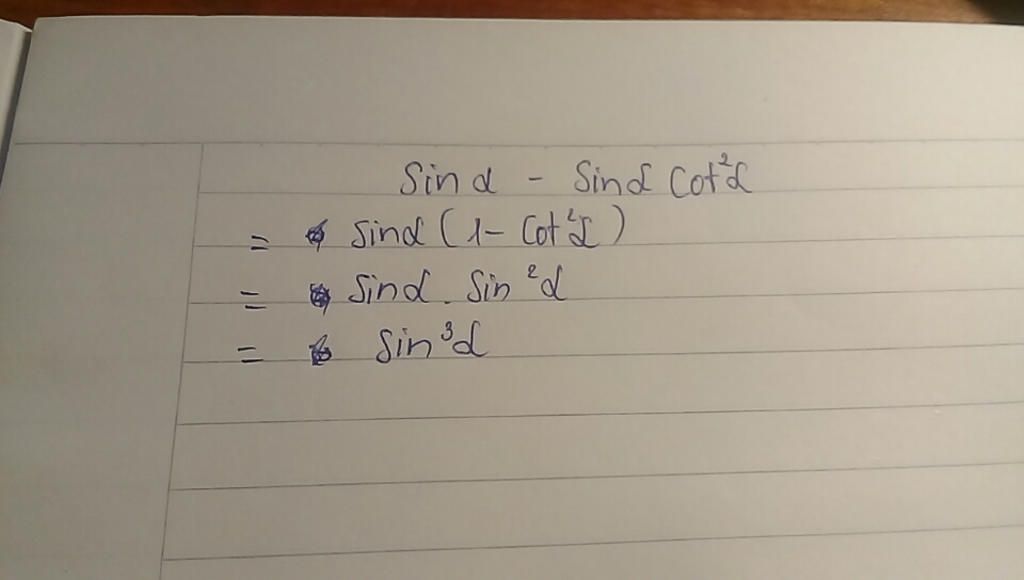 Sin α - Sin α Cot²α
= Sin α (1 - Cot²α)
= Sin α . Sin²α
= Sin³α